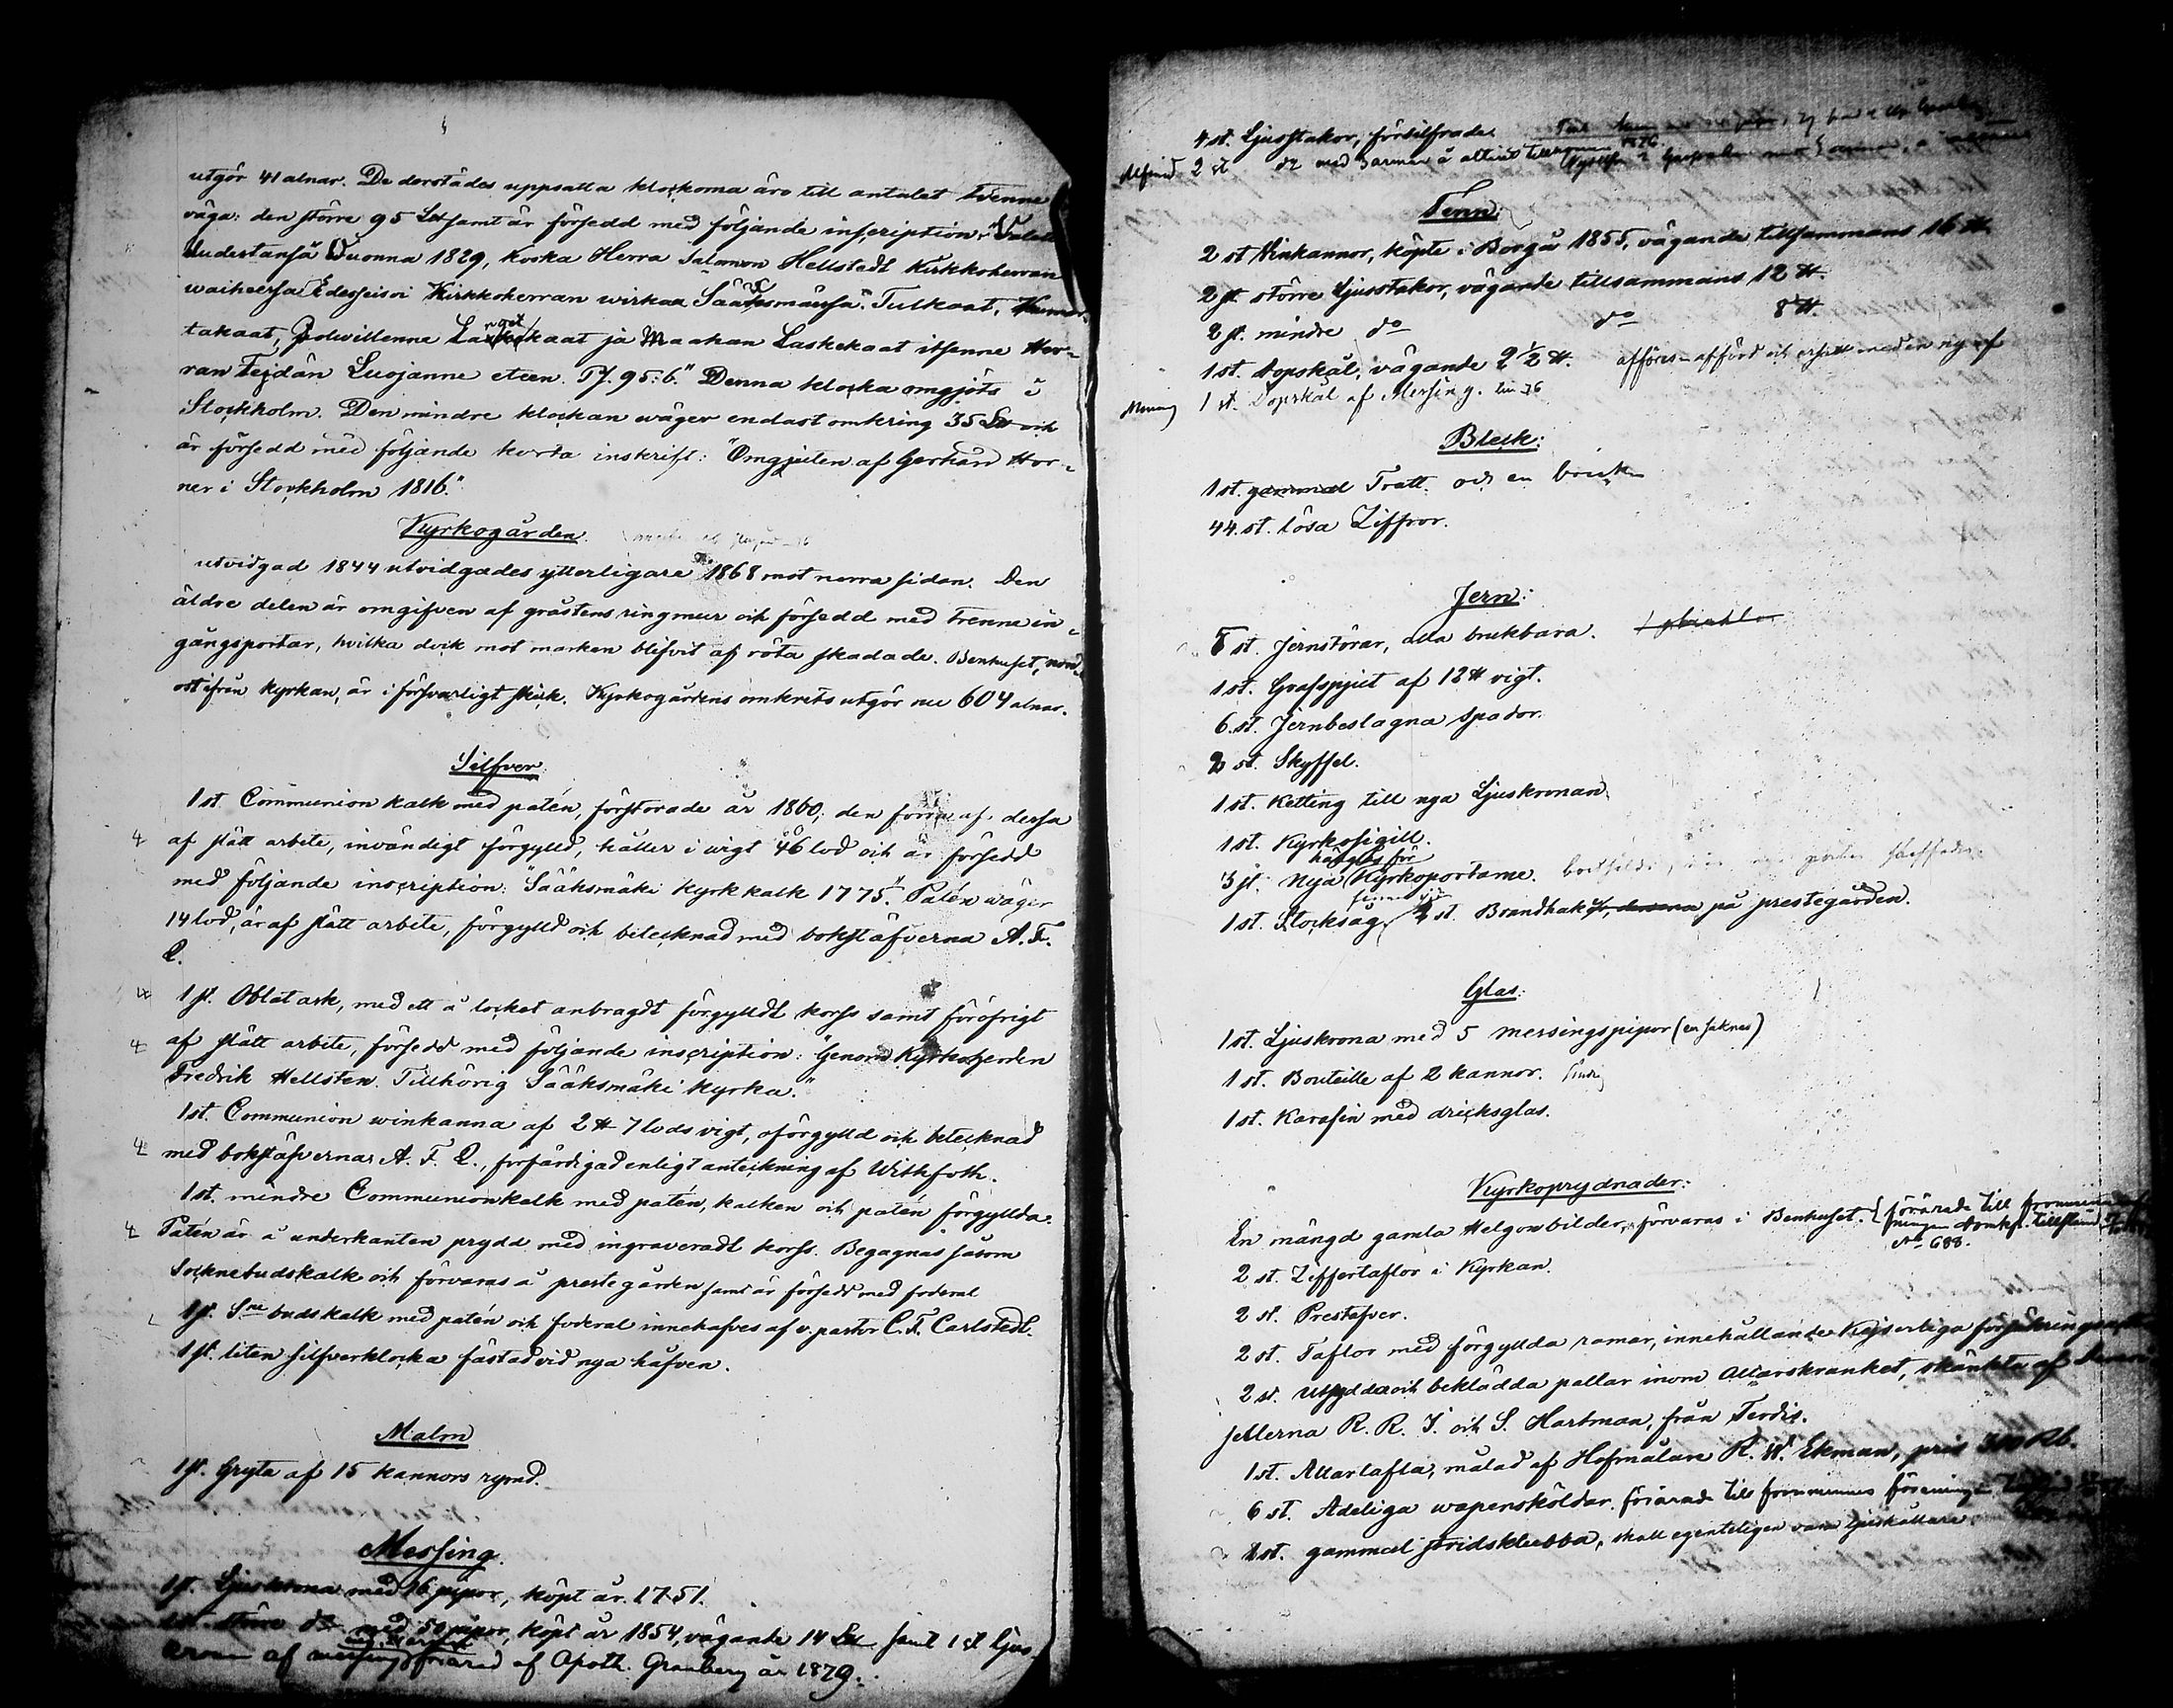 utgör 41 alnar. De derstädes uppsatta klockorna äro till antalet tvenne
väga: den större 95 L℔ samt är försedd med följande inscription: "Valettu
Uudestansa Vuonna 1829, koska Herra Salomon Hellstedt Kirkkoherran
waiheesa Edesseisoi Kirkkoherran wirkaa Sääksmäusä. Tulkaat, Kumar-
takaat, Polwillenne Langetkaat ja Maahan Laskekaat itsenne Her-
ran Teidän Luojanne eteen. Ps. 95:6." Denna klocka omgjöts i
Stockholm. Den mindre klockan wäger endast omkring 35 L℔ och
är försedd med följande korta inskrift: "Omgjuten af Gerhard Hor-
ner i Stockholm 1816."
Kyrkogården.
utvidgad 1844 utvidgades ytterligare 1868 mot norra sidan. Den
äldre delen är omgifven af gråstens ringmur och försedd med trenne in-
gångsportar, hvilka dock mot marken blifvit af röta skadade. Benhuset, nord-
ost ifrån kyrkan, är i försvarligt skick. Kyrkogårdens omkrets utgör nu 604 alnar.
Silfver.
1 st. Communion kalk med patén, förstorade år 1860; den förra af dessa
af slätt arbete, invändigt förgylld, håller i vigt 46 lod och är försedd
med följande inscription: "Sääksmäki Kyrkkalk 1775." Patén wäger
14 lod, är af slätt arbete, förgylld och betecknad med bokstäfverna A. F.
Q.
1 st. Oblatask, med ett å locket anbragdt förgylldt korss samt föröfrigt
af slätt arbete, försedd med följande inscription: "Genom Kyrkoherden
Fredrik Hellsten. Tillhörig Sääksmäki kyrka."
1 st. Communion winkanna af 2 ℔ 7 lods vigt, oförgylld och betecknad
med bokstäfverna A. F. Q., förfärdigad enligt anteckning af Withfoth.
1 st. mindre Communionkalk med patén, kalken och patén förgyllda.
Patén är å underkanten prydd med ingraveradt korss. Begagnas såsom
Socknebudskalk och förvaras å prestegården samt är försedd med foderal
1 st. Sne budskalk med patén och foderal innehafves af v. pastor C. F. Carlstedt.
1 st. liten silfverklocka fästad vid nya håfven.
Malm
1 st. Gryta af 15 kannors rymd.
Messing.
1 st. Ljuskrona med 16 pipor, köpt år 1751.
1 st. större do med 50 pipor, köpt år 1854, vägande 14 L℔ samt 1 st ljus
krona af messing förärad af Apoth. Granberg år 1879.
4 st. Ljusstakor, försilfrade.
2 st do med 3 armar å altaret tillkomna 1876.
Tenn:
2 st Winkannor, köpte i Borgå 1855, vägande tillsammans 16 ℔.
2 st. större Ljusstakor, vägande tillsammans 12 ℔.
2 st. mindre do do 8 ℔.
1 st. dopskål, vägande 2 1/2 ℔. afföres - afförd och ersatt med en ny af
1 st. Dopskål af Messing.
Bleck:
1 st. gammal Tratt. och en bricka
44. st. lösa Ziffror.
Jern:
5 st. Jernstörar, alla brukbara.
1 st. Grafspjut af 12 ℔ vigt.
6. st. Jernbeslagna spador.
2 st. Skyffel.
1 st. Ketting till nya Ljuskronan.
1 st. Kyrkosigill.
hänglås för
3 st. nya Kyrkoportarne.
1 st. Stocksåg, 2 st. Brandhakar, på prestegården.
Glas:
1 st. Ljuskrona med 5 messingspipor (en saknas)
1 st. Bouteille af 2 kannor.
1 st. Karafin med dricksglas.
Kyrkoprydnader:
En mängd gamla Helgonbilder, förvaras i Benhuset. förärade till fornminnes
No 688.
2 st. Ziffertaflor i Kyrkan.
2 st. Prestafver.
2 st. Taflor med förgyllda ramar, innehållande Kejserliga försäkringar
2 st. utsydda och beklädda pallar inom Altarskranket, skänkta af Demoi-
sellerna R. R. J. och S. Hartman, från Terdis.
1 st. Altartafla, målad af Hofmålare R. W. Ekman, pris 300 Rb.
6 st. Adeliga wapensköldar. förärade till fornminnes förening
1 st. gammal stridsklubba, skall egenteligen vara ljushållare.